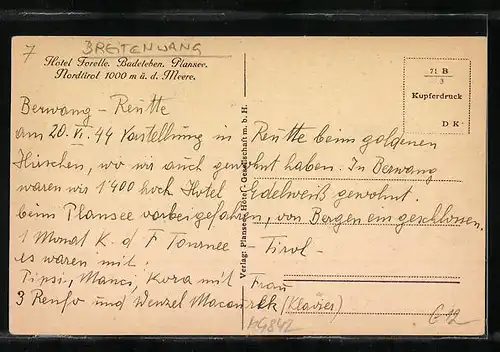 7
BREITENWANG
Hotel Forelle. Badeleben. Plansee.
Nordtirol 1000 m ü. d. Meere.
71 B
3
Kupferdruck
D K
Verlag: Plansee-Hotel-Gesellschaft m. b. H.
Berwang - Reutte
am 20. VI. 44 Vorstellung in Reutte beim goldenen
Hirschen, wo wir auch gewohnt haben. In Berwang
waren wir 1400 hoch Hotel Edelweiß gewohnt.
beim Plansee vorbeigefahren, von Bergen eingeschlossen.
1 Monat K. d F Tournee - Tirol -
es waren mit.
Pipsi, Manci, Kora mit Frau
3 und Wenzel (Klavier)
K9842
C 12